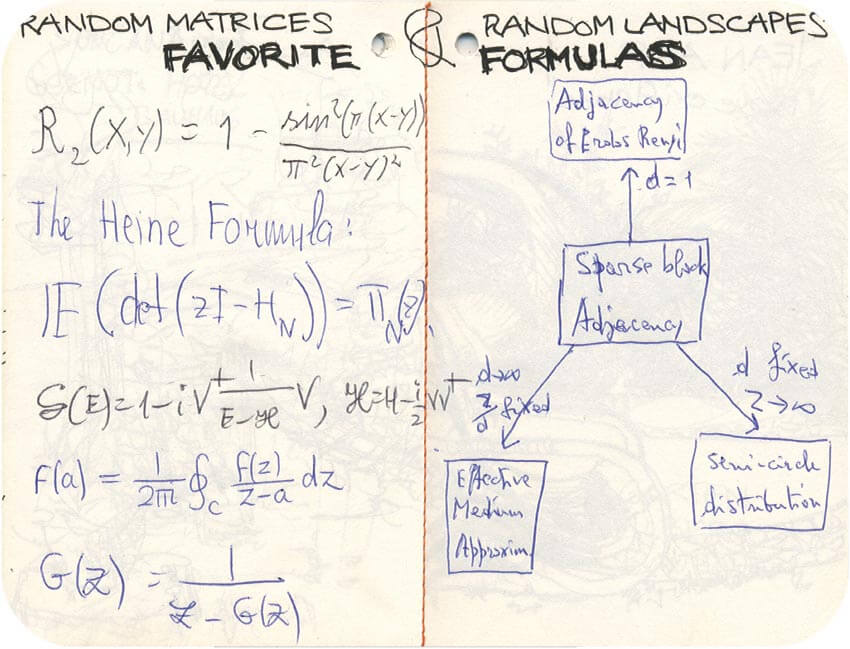 RANDOM MATRICES & RANDOM LANDSCAPES
FAVORITE FORMULAS
R₂(X,Y) = 1 - sin²(π(x-y)) / π²(x-y)²
The Heine Formula:
𝔼(det(zI-H_N)) = π_N(z).
S(E)=1-iV⁺ 1/(E-ℋ) V, ℋ=H-i/2 VV⁺
f(a) = 1/2πi ∮_C f(z)/(z-a) dz
G(z) = 1/(z - G(z))
Adjacency
of Erdos Renyi
d=1
Sparse block
Adjacency
d→∞
Z/d fixed
d fixed
Z→∞
Effective
Medium
Approxim.
Semi-circle
distribution